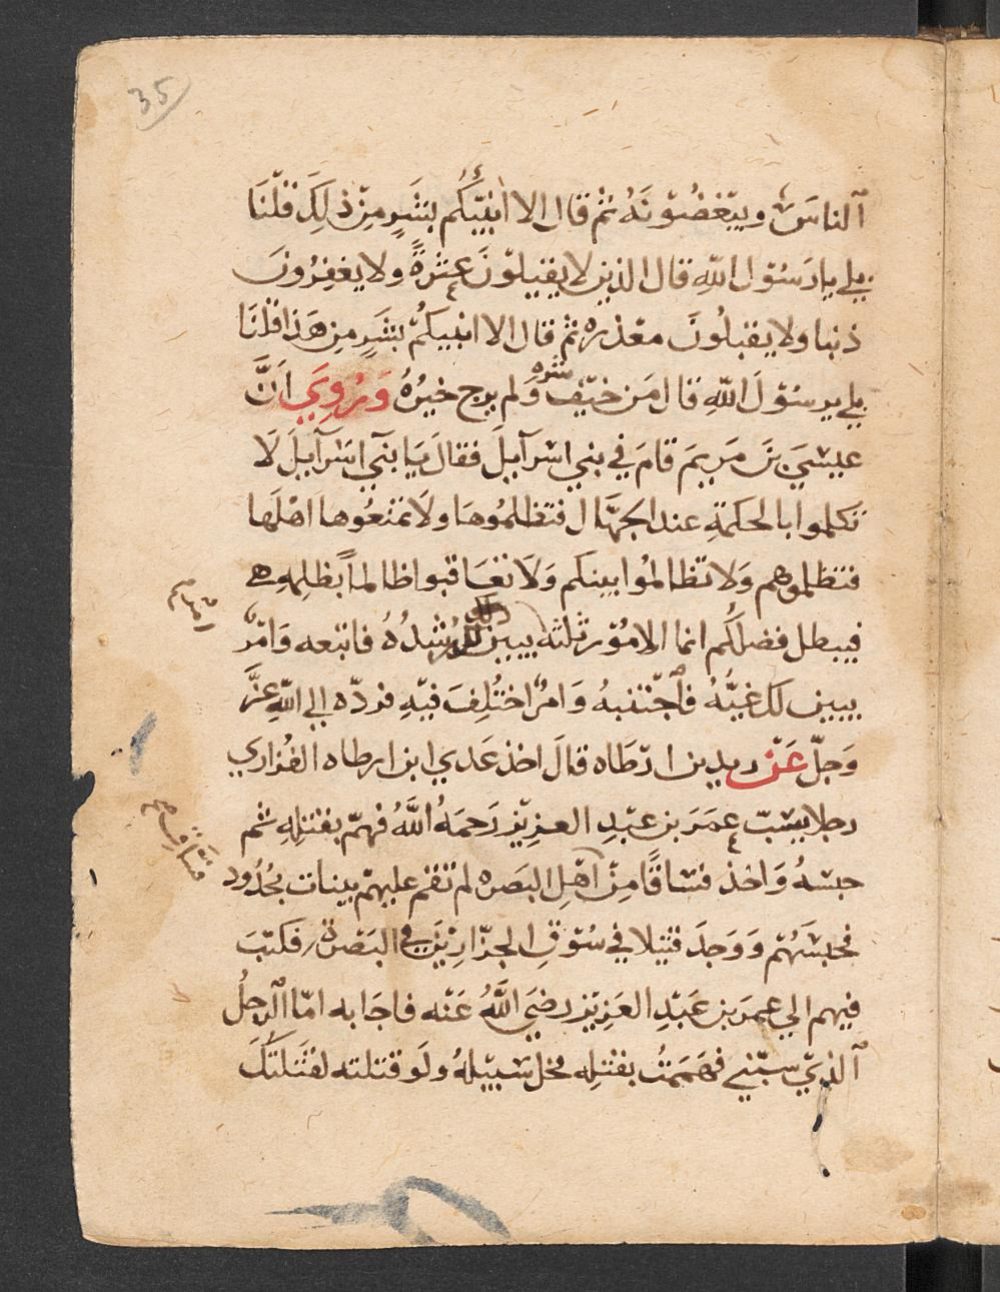 35
الناسَ ويبْغضُوْنَهُ ثم قال الا انبيّكم بشَرٍ مِنْ ذلِكَ قلْنَا
بلي يا رسُوْل اللهِ قال الذين لا يقيلوْنَ عثرةً ولا يغفِرُونَ
ذنبا ولا يقبلُونَ معْذره ثم قال الا انبيكمْ بشَرٍ مِن هَذا قلْنَا
بلي يرسُوْلَ اللهِ قال مَن خيْف شره وَلم يرج خيرُهُ وَرُوِيَ اَنَّ
عيسْيَ بنَ مَريمَ قامَ في بني اسرآييلَ فقالَ يَا بنَي اسْرآييلَ لَا
تكلموا بالحكمَةِ عند الجهَّال فتظلمُوهَا ولَا تمنَعُوها اهْلَها
فتظلموهم وَلا تظالمُوا بينكم وَلَا تعَاقبوا ظالماً بظلِمهِ
فيبطل فضلكُم انما الامُوْر ثلثه يبين لك رُشدُهُ فاتبعه وَامْرٌ
يبين لك غيُّهُ فاجْتنبهُ وَامرٌ اختُلِفَ فيْهِ فردّه الي اللهِ عزَّ
وَجلّ عَنْ ارْطَاه قالَ اخذ عَدي ابن ارطاه الفُزاري
رجلا يسُبّ عمَرَ بن عبْدِ العزيْز رَحمَهُ اللَّهُ فهمّ بقتْلِهِ ثم
حبسَهُ وَاخذ فسَاقًا مِنْ اَهْلِ البَصَره لم تقم عليهمْ بينات بحُدُود
فحبسَهُمْ وَوَجدَ قتيلا في سُوْقِ الجزّارِيْنَ في البَصْرة فكتَبَ
فيهم الي عمرَ بن عَبْدِ العَزِيْز رضيَ اللَّهُ عَنْه فاجَابه امّا الرجلُ
الذيْ سبّني فهَمَمتُ بقتْلِه فخل سَبيْلهُ ولَو قتلته لقتَلتُكَ